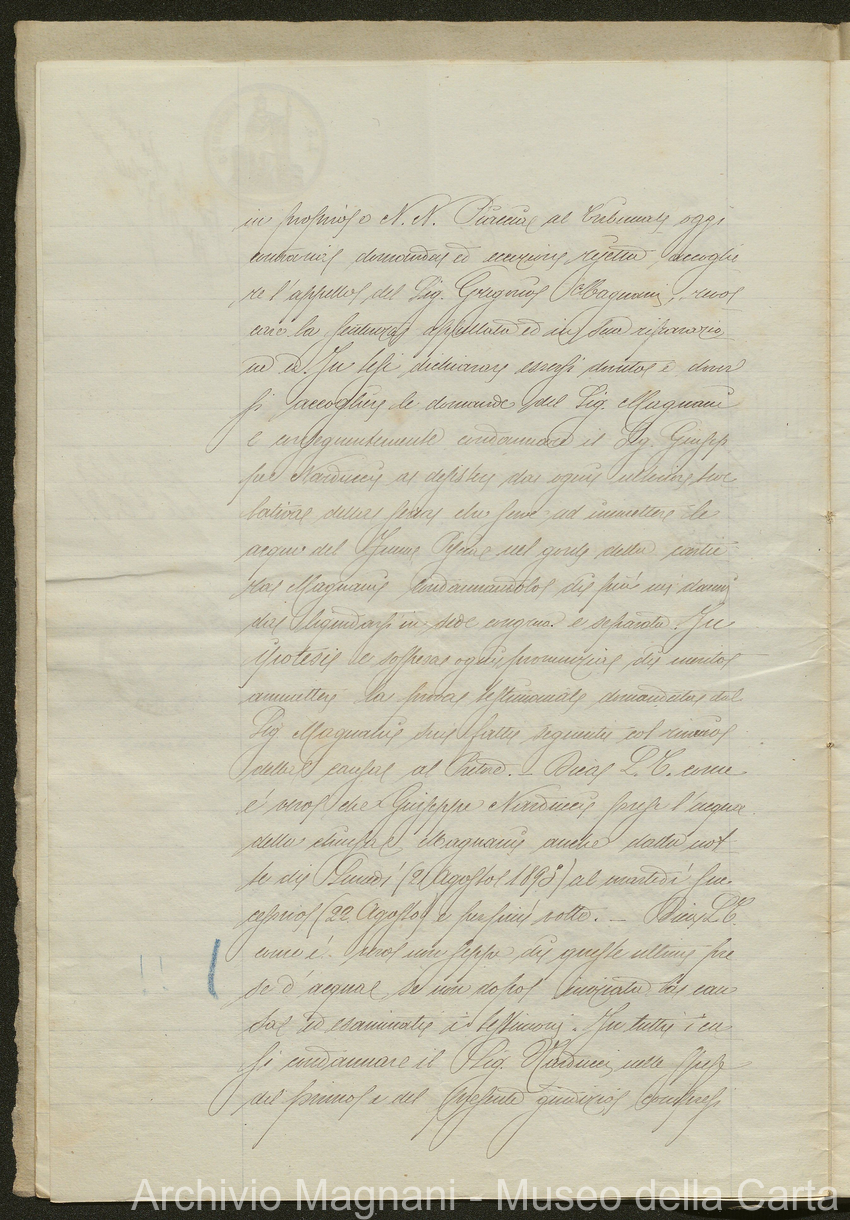 in proprio e N. N. Piacciavi al Tribunale oggi
contraria domanda ed eccezione rejetta accoglie
re l'appello del Sig. Gregorio Magnani, revo
care la sentenza appellata ed in sua riparazio
ne In tesi dichiarare essersi dovute e dover
si accogliere le domande del Sig. Magnani
e conseguentemente condannare il Sig. Giusep
pe Narducci a desistere da ogni ulteriore tur
bativa della presa che serve ad immettere le
acque del fiume Pescia nel gorile della cartie
ra Magnani condannandolo di più nei danni
da liquidarsi in sede congrua e separata. In
ipotesi e sospesa ogni pronunzia di merito
ammettere la prova testimoniale domandata dal
Sig Magnani sui fatti seguenti col rinvio
della causa al Pretore. — Dica L. T. come
è vero che Giuseppe Narducci prese l'acqua
della chiusa Magnani anche dalla not
te di Lunedì (21 Agosto 1893) al martedì suc
cessivo (22 Agosto) e per più volte. — Dica L. T.
come è vero non seppe di queste ultime pre
se d'acqua se non dopo iniziata la cau
sa ed esaminati i testimoni. In tutti i ca
si condannare il Sig. Narducci nelle spese
del primo e del presente giudizio compresi
Archivio Magnani - Museo della Carta